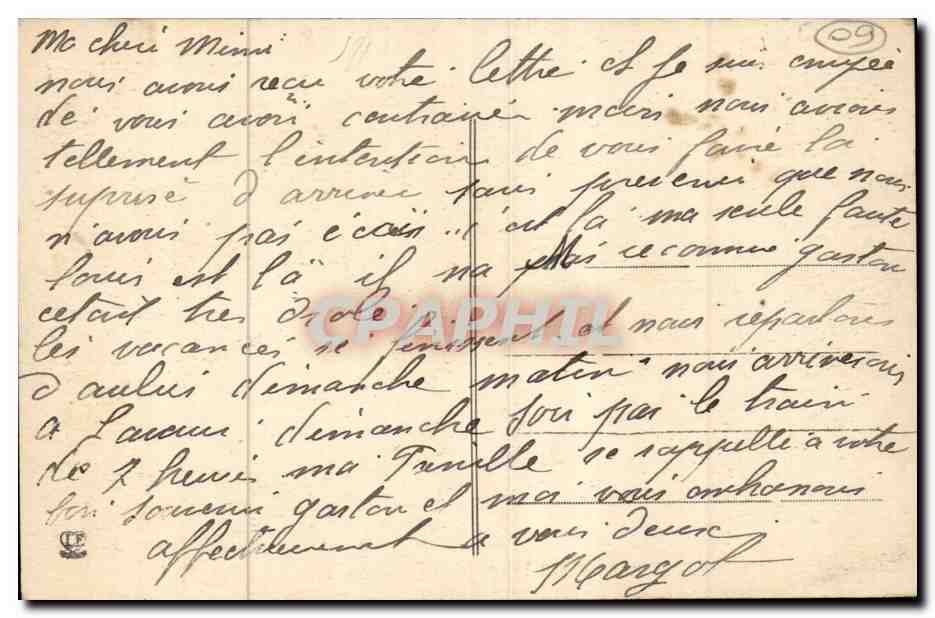 09
Ma cheri Mimi
nous avons recu votre lettre et je suis
de vous avoir contrarié mais nous avions
tellement l'intention de vous faire la
suprise d'arriver sans prevenir que nous
n'avons pas écrit.. c'est là ma seule faute
louis est là il na pas reconnu gaston
cetait tres drole
les vacances se finissent et nous repartons
d'aulus dimanche matin nous arriverons
a Lavaur dimanche soir par le train
de 7 heures ma famille se rappelle a votre
bon souvenir gaston et moi vous embrassons
affectueusement a vous deux
Margot
CPAPHIL